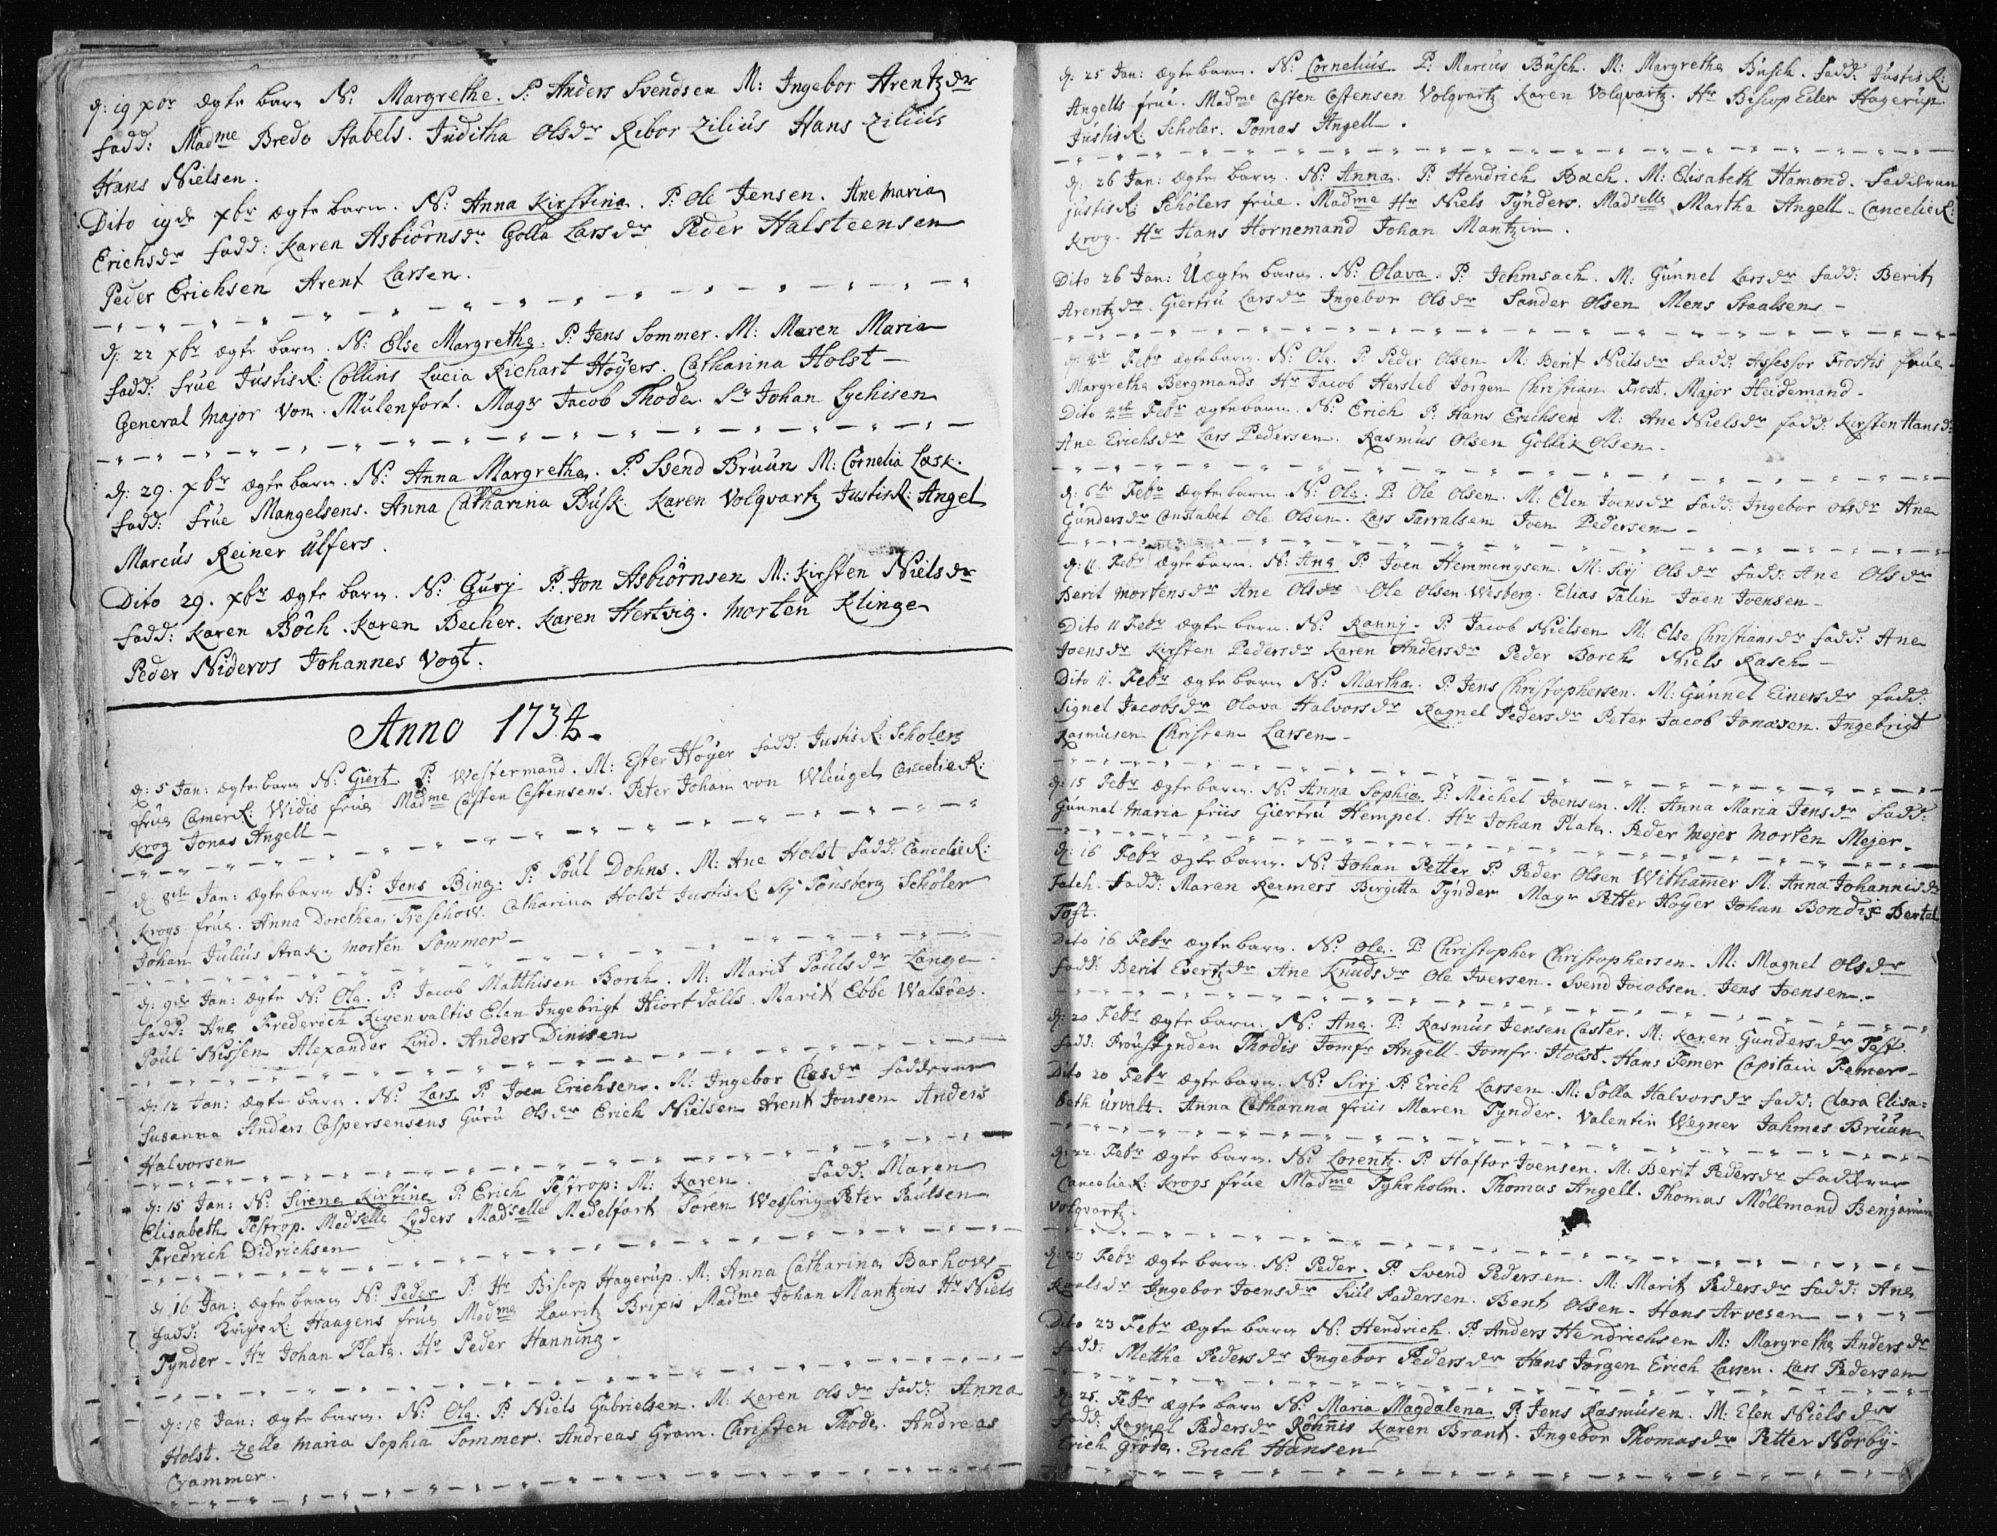 d: 19 xbr ægte barn N: Margrethe. P: Anders Svendsen M: Ingebor Arentzdr
fadd: Madme Bredo Stabels. Juditha Olsdr Ribor Zilius Hans Zilius
Hans Nielsen.
Dito 19de xbr ægte barn. N: Anna Kirstina. P: Ole Jensen. Ane Maria
Erichsdr fadd: Karen Asbiörnsdr Golla Larsdr Peder Halsteensen
Peder Erichsen Arent Larsen.
d: 22 xbr ægte barn. N: Else Margrethe. P: Jens Sommer. M: Maren Maria
fadd: frue JustisR: Collins Lucia Richart Höyers. Catharina Holst
General Major Von. Mülenfort. Magr Jacob Thode. Sr Johan Lychisen
d: 29. xbr ægte barn. N: Anna Margretha. P: Svend Bruun M: Cornelia Læsk.
fadd: frue Mangelsens. Anna Catharina Busk. Karen Volqvartz JustisR: Angel
Marcus Reiner Ulfers.
Dito 29. xbr ægte barn. N: Gurj P: Jon Asbiörnsen M: Kirsten Nielsdr
fadd: Karen Böch. Karen Becher. Karen Hertvig. Morten Klinge
Peder Nideros Johannes Vogt.
Anno 1734.
d: 5 Jan: ægte barn N: Giert. P: Westermand. M: Ester Höyer fadd: JustisR: Schölers
frue CamerR: Widis frue Madme Casten Castensens. Peter Johan von Wleugel CancelieR:
Krog Jonas Angell
d 8de Jan: ægte barn N: Jens Bing. P: Poul Dohns. M: Ane Holst fadd: CancelieR:
Krogs frue. Anna Dorethea Treschow. Catharina Holst JustisR: Stj Tönsberg Schöler
Johan Julius Strak. Morten Sommer
d: 9de Jan: ægte N: Ole. P: Jacob Matthisen Borch. M: Marit Poulsdr Lange
fadd: Ane Frederich Rigenvaltis Elen Ingebrigt Hiortdalls. Marit Ebbe Walsöes.
Poul Nissen Alexander Lind. Anders Dinisen
d: 12 Jan: ægte barn. N: Lars P: Joen Erichsen. M: Ingebor Clasdr fadderne
Susanna Anders Caspersensens Guru Olsdr Erich Nielsen Arent Jonsen Anders
Halvorsen
d: 15 Jan: N: Sirena Kirstine P: Erich Testrop: M: Karen. fadd: Maren
Elisabeth Testrop. Madselle Lyders Madselle Medelfart Sören Wessing Peter Paulsen
Fredrich Didrichsen
d 16 Jan: ægte barn N: Peder P: Hr Biscop Hagerup. M: Anna Catharina Barhow
fadd: KrigsR: Haagens frue Madme Lauritz Brixis Madme Johan Mantzins Hr Niels
Tynder. Hr Johan Plate. Hr Peder Hanning.
d: 18 Jan: ægte barn. N: Ole. P: Niels Gabrielsen. M: Karen Olsdr fadd: Anna
Holst. Zelle Maria Sophia Sommer. Andreas Gram. Christen Thode. Andreas
Crammer.
d: 25 Jan: ægte barn. N: Cornelius P: Marcus Busch M: Margretha Busch. fadd: JustisR:
Angells frue. Madme Casten Castensen Volqvartz Karen Volqvartz. Hr Bishop Eiler Hagerup
JustisR: Schöler. Tomas Angell.
d: 26 Jan: ægte barn. N: Anna. P: Hendrich Bach. M: Elisabeth Hamond. fadderne
JustisR: Schölers frue. Madme Hr Niels Tynders. Madselle Martha Angell. CancelieR:
Krog. Hr Hans Hornemand Johan Mantzin.
Dito 26 Jan: Uægte barn. N: Olava. P: Jehmsach. M: Gunnel Larsdr fadd: Berit
Arentzdr. Giertru Larsdr Ingebor Olsdr Sander Olsen Mens Staalsen
d: 4de Febr ægte barn. N: Ole P: Peder Olsen M: Berit Nielsdr fadd: Assessor Frostis frue
Margretha Bergmands Hr Jacob Hersleb Jörgen Christian Frost. Major Heidemand.
Dito 4de Febr ægte barn. N: Erich P: Hans Erichsen M: Ane Nielsdr fadd: Kirsten Hansdr
Ane Erichsdr Lars Pedersen. Rasmus Olsen Gollik Olsen.
d: 6te Febr ægte barn. N: Ole. P: Ole Olsen. M: Elen Joensdr fadd: Ingebor Olsdr Ane
Gundersdr Constabel Ole Olsen. Lars Tarralsen Joen Pedersen
d: 11. Febr ægte barn. N: Ane P: Joen Hemmingsen. M: Sirj Olsdr fadd: Ane Olsdr
Berit Mortensdr Ane Olsdr Ole Olsen Wesberg. Elias Talin Joen Joensen
Dito 11 Febr ægte barn. N: Rannj. P: Jacob Nielsen M: Else Christiansdr fadd: Ane
Joensdr Kirsten Pedersdr Karen Andersdr Peder Borch Niels Rasch
Dito 11. Febr ægte barn N: Martha. P: Jens Christophersen. M: Gunnel Einersdr fadd:
Signel Jacobsdr Olava Halvorsdr Ragnel Pedersdr Peter Jacob Jonasen. Ingebrigt
Rasmusen Christen Larsen
d: 15 Febr ægte barn. N: Anna Sophia P: Michel Joensen. M: Anna Maria Jensdr fadd:
Gunnel Maria friis Giertru Hempel. Hr Johan Plate. Peder Mejer Morten Mejer.
d: 16 Febr ægte barn. N: Johan Petter P: Peder Olsen Withammer M: Anna Johannisdr
Falch. fadd: Maren Reimers Birgitta Tynder Magr Petter Höyer Johan Bondis Bertel
Tost.
Dito 16 Febr ægte barn. N: Ole. P: Christopher Christophersen. M: Magnel Olsdr
fadd: Berit Evertzdr Ane Knudsdr Ole Iversen. Svend Jacobsen. Jens Joensen.
d: 20 Febr ægte barn. N: Ane. P: Rasmus Jensen Caster. M: Karen Gundersdr Tost
fadd: Frou Synden Thodis Jomfr Angell Jomfr. Holst. Hans Femer Capitain Femer
Dito 20 Febr ægte barn. N: Sirj P: Erich Larsen. M: Tolla Halvorsdr fadd: Clara Elisa=
beth Urvalt. Anna Catharina friis Maren Tynder. Valentin Wegner Jahmes Bruun
d: 22. Febr ægte barn. N: Lorentz P: Haftor Joensen. M: Berit Pedersdr fadderne
CancelieR: Krogs frue Madme Tyhrholm. Thomas Angell. Thomas Möllmand Benjamin
Volqvartz.
d: 23 Febr ægte barn. N: Peder. P: Svend Pedersen. M: Marit Pedersdr fadd: Ane
Roalsdr Ingebor Joensdr Siul Pedersen. Bent Olsen. Hans Arvesen
Dito 23 Febr ægte barn N: Hendrich. P: Anders Hendrichsen M: Margretha Andersdr
fadd: Metthe Pedersdr Ingebor Pedersdr Hans Jörgen Erich Larsen. Lars Pedersen
d: 25. Febr ægte barn N: Maria Magdalena P: Jens Rasmusen. M: Elen Nielsdr
fadd: Ragnel Pedersdr Röhnis Karen Brant. Ingebor Thomasdr Petter Norby
Erich Gröde. Erich Hansen